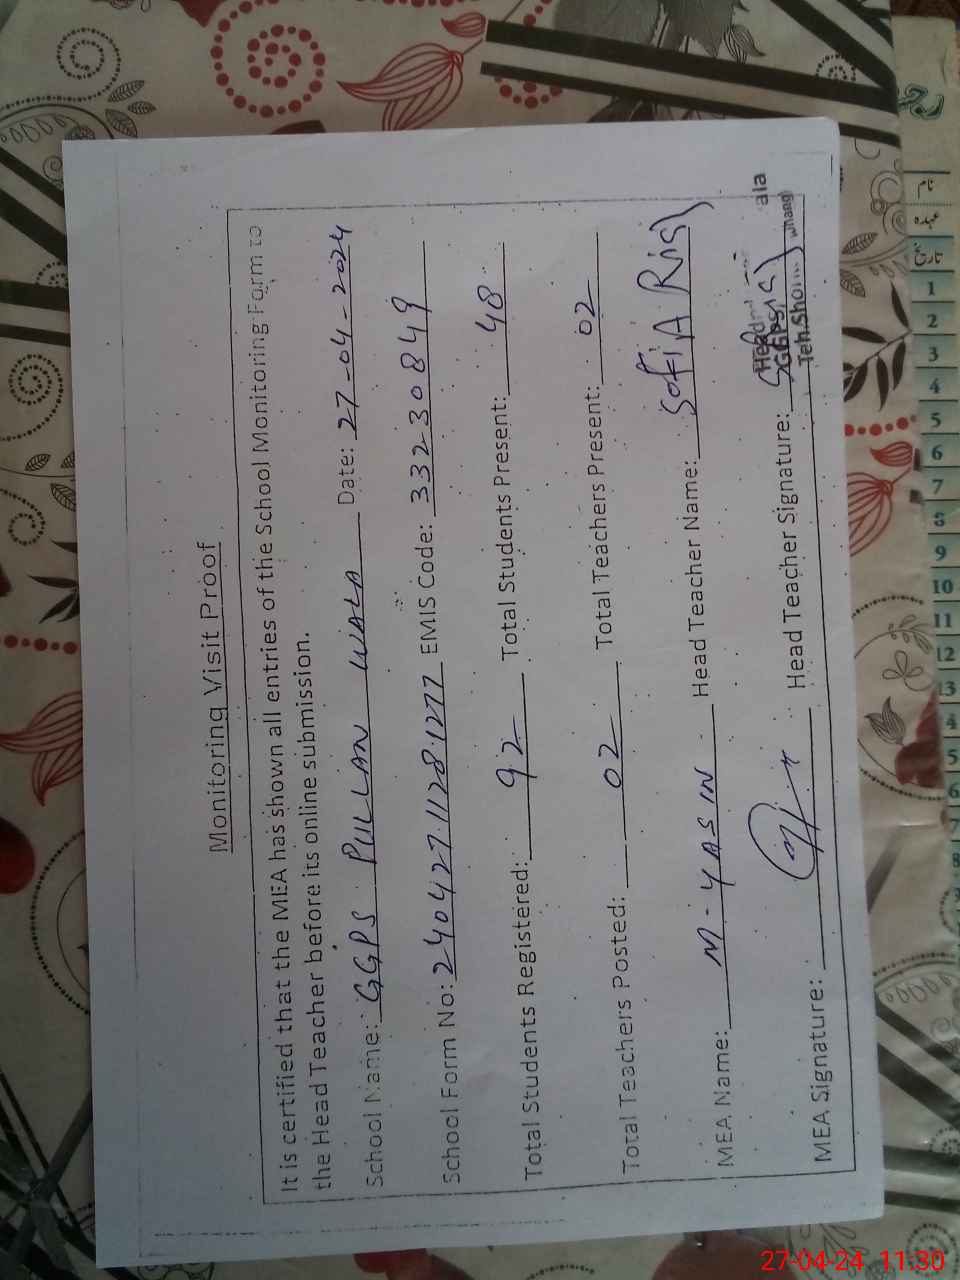 Monitoring Visit Proof
It is certified that the MEA has shown all entries of the School Monitoring Form to
the Head Teacher before its online submission.
School Name: GGPS PULLAN WALA Date: 27-04-2024
School Form No: 240427.1128.1277 EMIS Code: 33230849
Total Students Registered: 92 Total Students Present: 48
Total Teachers Posted: 02 Total Teachers Present: 02
MEA Name: M-YASIN Head Teacher Name: SofiA
MEA Signature: Head Teacher Signature:
ala
Teh.Shor
1
2
3
4
5
6
7
8
9
10
11
12
13
27-04-24 11:30